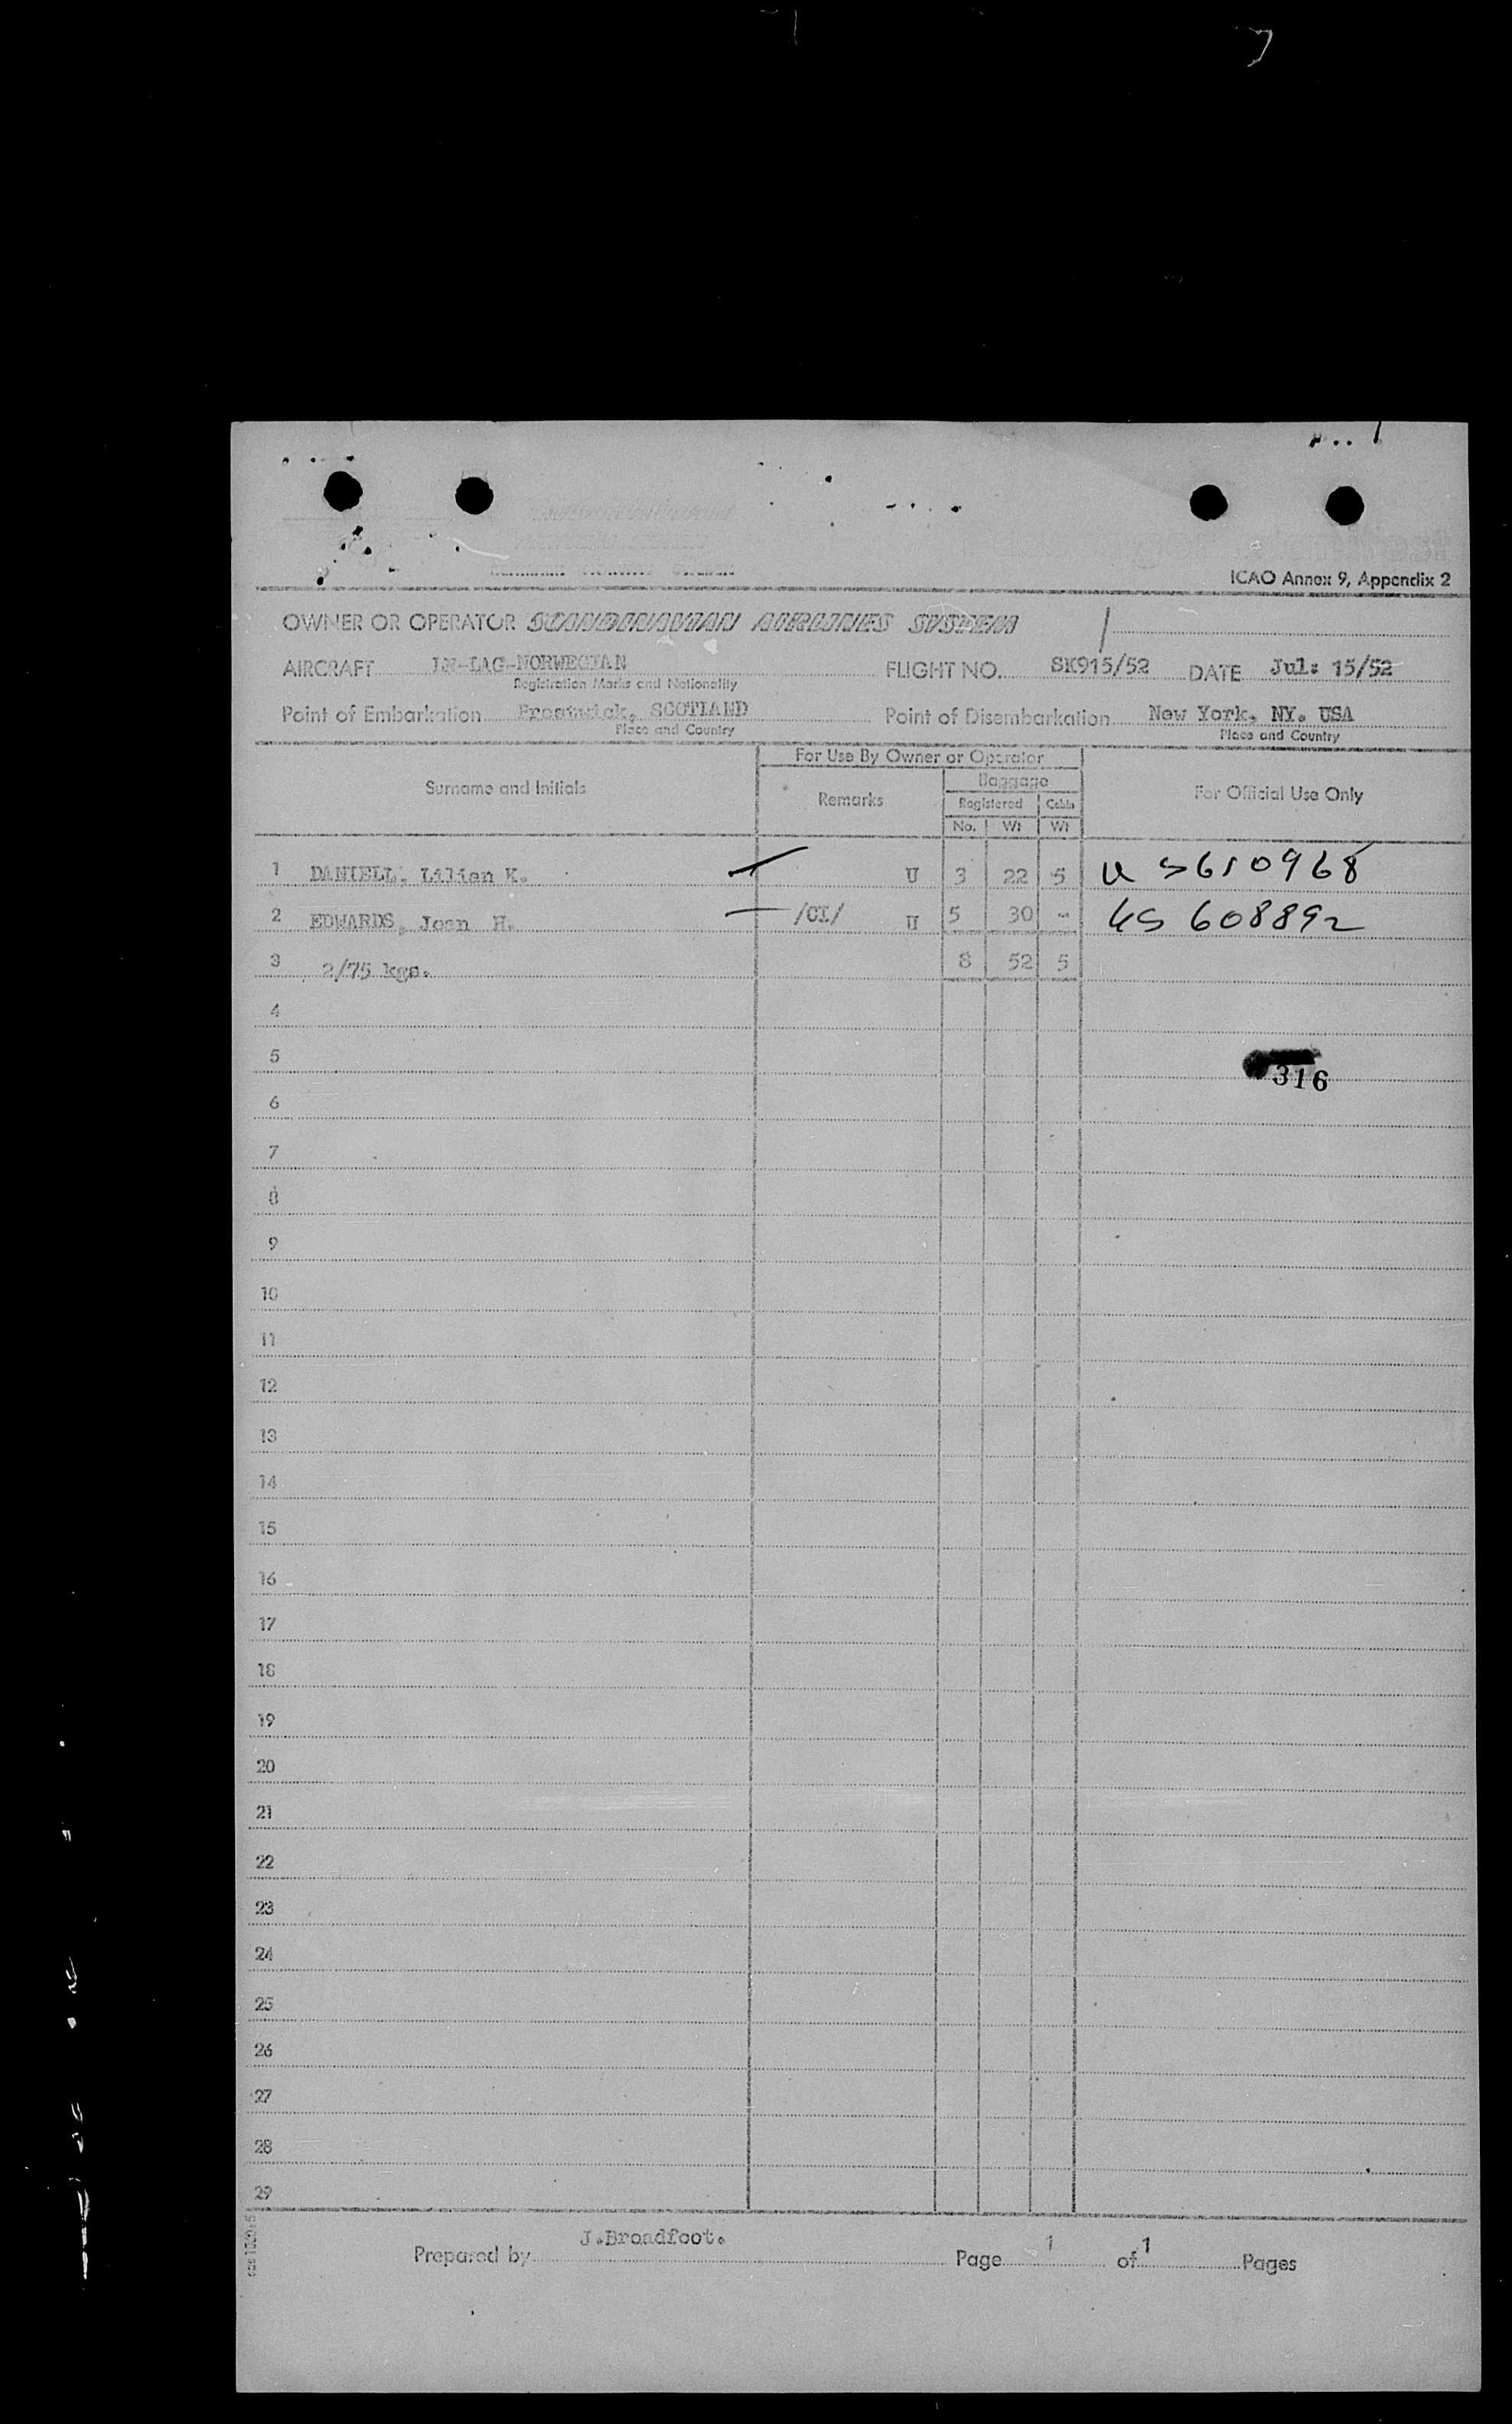 ICAO Annex 9, Appendix 2
OWNER OR OPERATOR SCANDINAVIAN AIRLINES SYSTEM
AIRCRAFT LN-LAG-NORWEGIAN FLIGHT NO. SK915/52 DATE Jul: 15/52
Registration Marks and Nationality
Point of Embarkation Prestwick, SCOTLAND Point of Disembarkation New York, NY. USA
Place and Country Place and Country
For Use By Owner or Operator
Surname and Initials Remarks Baggage For Official Use Only
Registered Cabin
No. Wt Wt
1 DANIELL, Lilian K. U 3 22 5 U S610968
2 EDWARDS, Joan H. /CI/ U 5 30 - US 608892
3 2/75 kgs. 8 52 5
4
5
316
6
7
8
9
10
11
12
13
14
15
16
17
18
19
20
21
22
23
24
25
26
27
28
29
Prepared by J.Broadfoot. Page 1 of 1 Pages